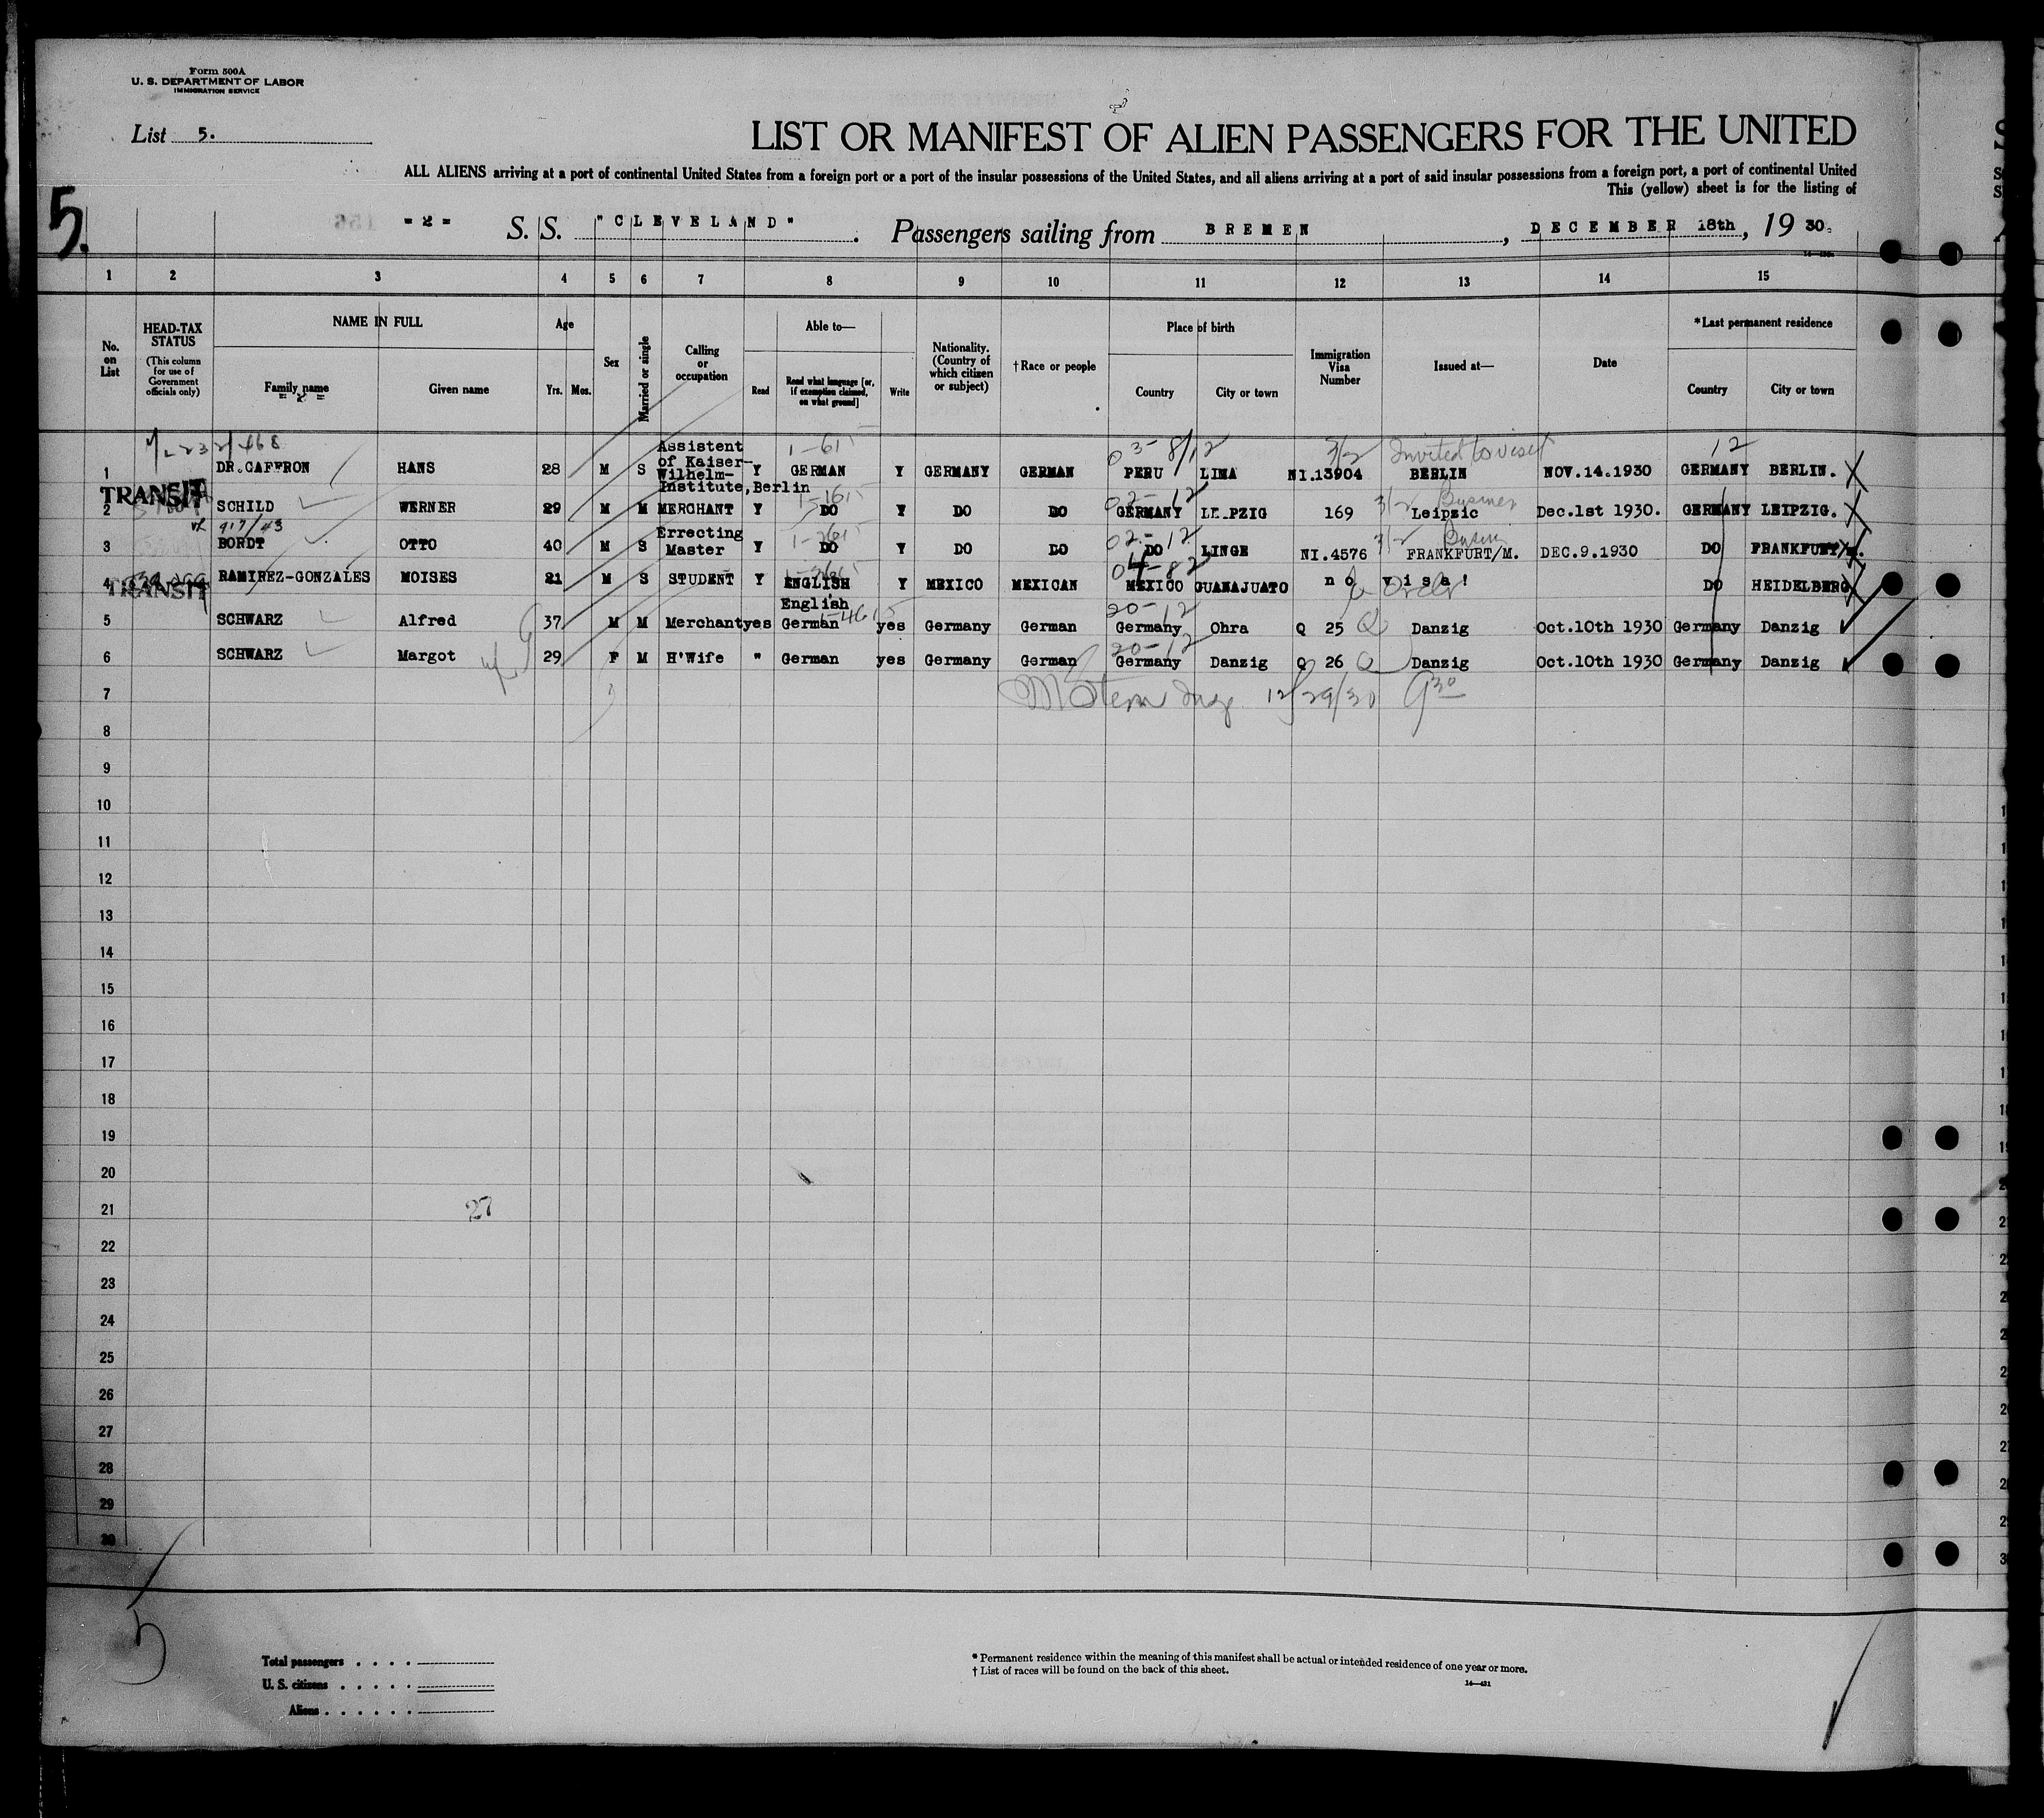 Form 500A
U. S. DEPARTMENT OF LABOR
IMMIGRATION SERVICE
List 5.
LIST OR MANIFEST OF ALIEN PASSENGERS FOR THE UNITED
ALL ALIENS arriving at a port of continental United States from a foreign port or a port of the insular possessions of the United States, and all aliens arriving at a port of said insular possessions from a foreign port, a port of continental United
This (yellow) sheet is for the listing of
5.
- 2 - S. S. "CLEVELAND". Passengers sailing from BREMEN, DECEMBER 18th, 1930.
1 2 3 4 5 6 7 8 9 10 11 12 13 14 15
No. on List
HEAD-TAX STATUS (This column for use of Government officials only)
NAME IN FULL Family name Given name
Age Yrs. Mos.
Sex
Married or single
Calling or occupation
Able to— Read Read what language [or, if exemption claimed, on what ground] Write
Nationality. (Country of which citizen or subject)
†Race or people
Place of birth Country City or town
Immigration Visa Number
Issued at—
Date
*Last permanent residence Country City or town
1 DR.CAFFRON HANS 28 M S Assistent of Kaiser-Wilhelm-Institute,Berlin Y GERMAN Y GERMANY GERMAN PERU LIMA NI.13904 Invited to visit BERLIN NOV.14.1930 GERMANY BERLIN.
TRANSIT
2 SCHILD WERNER 29 M M MERCHANT Y DO Y DO DO GERMANY LEIPZIG 169 Leipzic Dec.1st 1930. GERMANY LEIPZIG.
917/43
3 BORDT OTTO 40 M S Errecting Master Y DO Y DO DO DO LINGE NI.4576 FRANKFURT/M. DEC.9.1930 DO FRANKFURT/M.
TRANSIT
4 RAMIREZ-GONZALES MOISES 21 M S STUDENT Y ENGLISH Y MEXICO MEXICAN MEXICO GUANAJUATO no visa! DO HEIDELBERG
5 SCHWARZ Alfred 37 M M Merchant yes English German yes Germany German Germany Ohra Q 25 Danzig Oct.10th 1930 Germany Danzig
6 SCHWARZ Margot 29 F M H'Wife " German yes Germany German Germany Danzig Q 26 Danzig Oct.10th 1930 Germany Danzig
7 12/29/30 9 30
8
9
10
11
12
13
14
15
16
17
18
19
20
21 27
22
23
24
25
26
27
28
29
30
5
Total passengers . . . .
U. S. citizens . . . . .
Aliens . . . . . .
* Permanent residence within the meaning of this manifest shall be actual or intended residence of one year or more.
† List of races will be found on the back of this sheet.
14—421